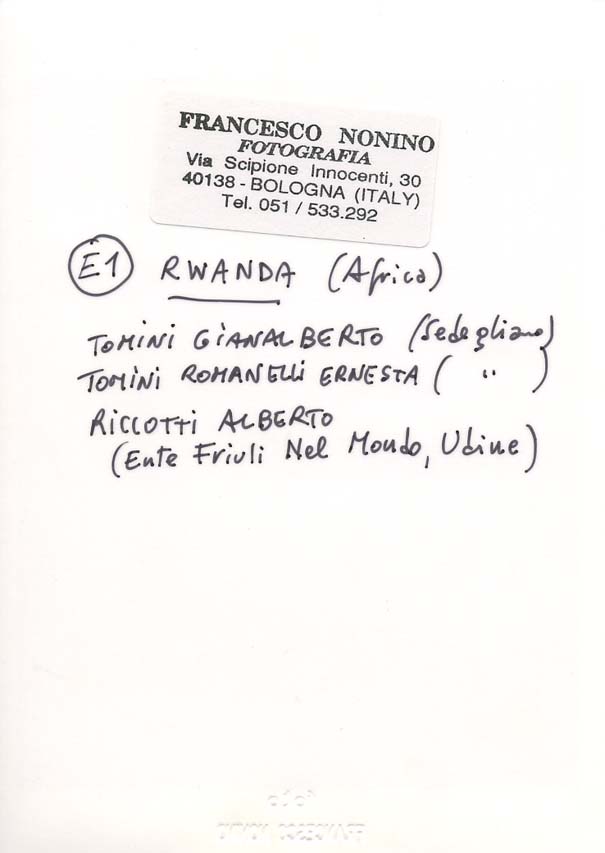 FRANCESCO NONINO
FOTOGRAFIA
Via Scipione Innocenti, 30
40138 - BOLOGNA (ITALY)
Tel. 051 / 533.292
E1 RWANDA (Africa)
TOMINI GIANALBERTO (Sedegliano)
TOMINI ROMANELLI ERNESTA ( " )
RICCOTTI ALBERTO
(Ente Friuli Nel Mondo, Udine)